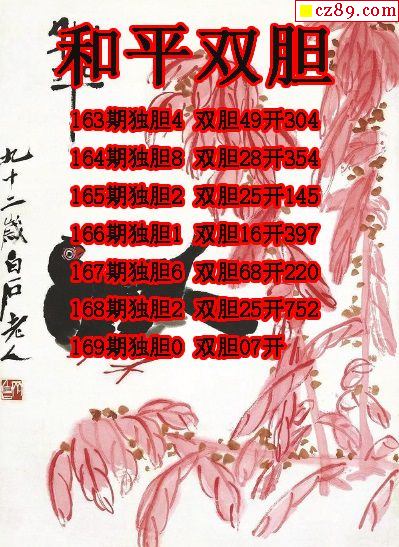 cz89.com
和平双胆
163期独胆4 双胆49开304
164期独胆8 双胆28开354
165期独胆2 双胆25开145
166期独胆1 双胆16开397
167期独胆6 双胆68开220
168期独胆2 双胆25开752
169期独胆0 双胆07开
九十二岁白石老人